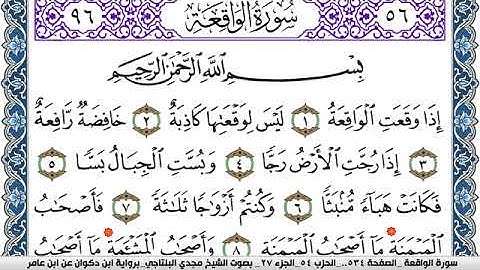 ٥٦ سُورَةُ الْوَاقِعَةِ ٩٦
بِسْمِ اللَّهِ الرَّحْمَٰنِ الرَّحِيمِ
إِذَا وَقَعَتِ الْوَاقِعَةُ ١ لَيْسَ لِوَقْعَتِهَا كَاذِبَةٌ ٢ خَافِضَةٌ رَّافِعَةٌ
٣ إِذَا رُجَّتِ الْأَرْضُ رَجًّا ٤ وَبُسَّتِ الْجِبَالُ بَسًّا ٥
فَكَانَتْ هَبَآءً مُّنۢبَثًّا ٦ وَكُنتُمْ أَزْوَاجًا ثَلَاثَةً ٧ فَأَصْحَابُ
الْمَيْمَنَةِ مَا أَصْحَابُ الْمَيْمَنَةِ ٨ وَأَصْحَابُ الْمَشْـَٔمَةِ مَا أَصْحَابُ
سورة الواقعة _الصفحة ٥٣٤..الحزب ٥٤_الجزء ٢٧_ بصوت الشيخ مجدي البلتاجي_برواية ابن دكوان عن ابن عامر